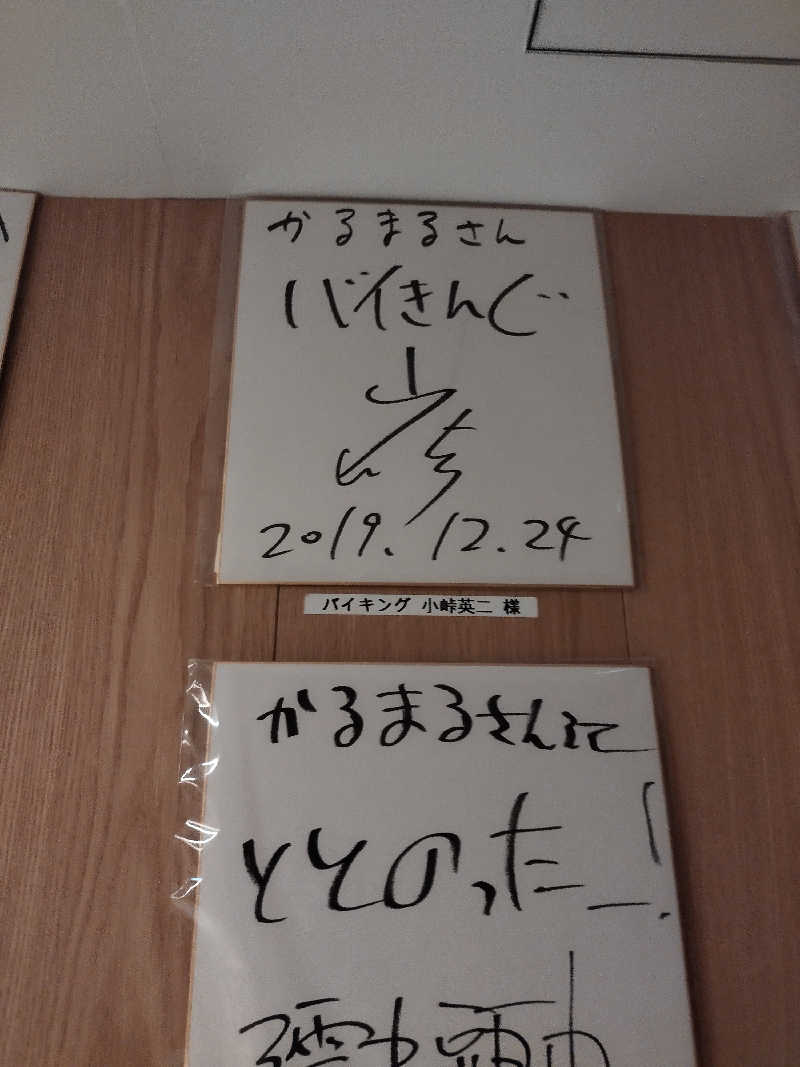 かるまるさん
バイきんぐ
2019.12.24
バイキング 小峠英二 様
かるまるさんにて
ととのったー!